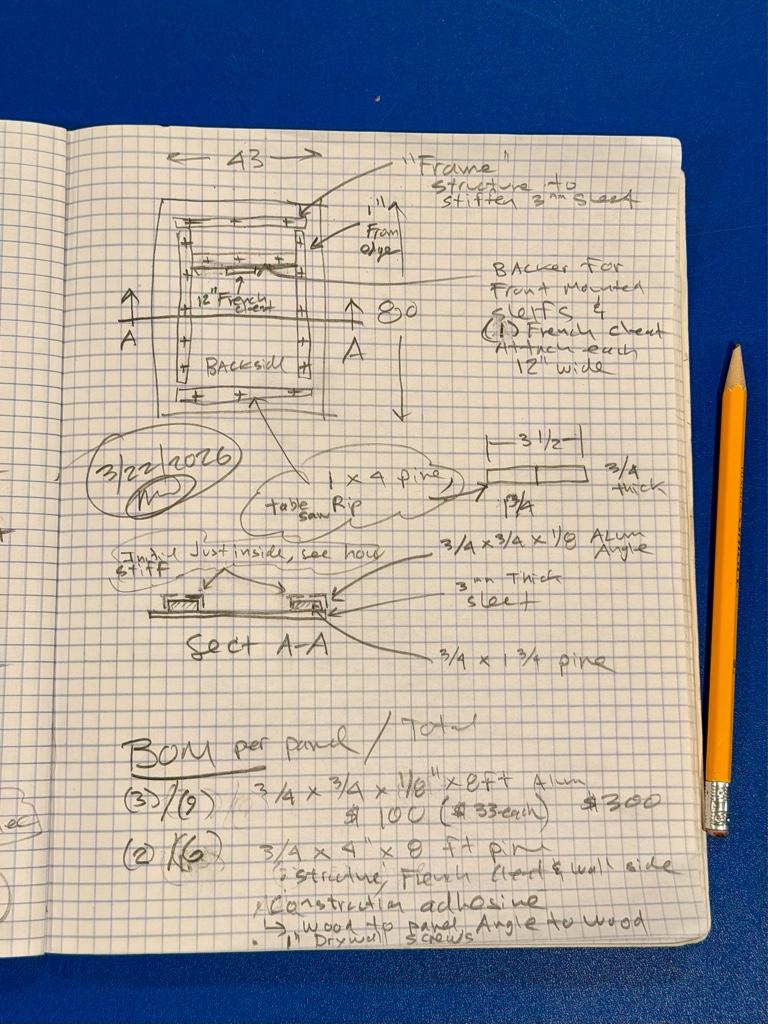 43
"Frame"
structure to
stiffen 3mm sheet
1"
From
edge
BACker For
Front Mounted
shelfs &
(1) French cleat
Attach each
12" wide
12" French
cleat
80
A
A
BACKside
3/22/2026
1 x 4 pine,
table saw Rip
3 1/2
3/4
thick
1 3/4
Just inside, see how
stiff
3/4 x 3/4 x 1/8 Alum
Angle
3mm Thick
sheet
Sect A-A
3/4 x 1 3/4 pine
BOM per panel / Total
(3)/(9) 3/4 x 3/4 x 1/8" x 8ft Alum
$100 ($33 each) $300
(2) /(6) 3/4 x 4" x 8 ft pine
Structure, French cleat & wall side
Construction adhesive
↳ wood to panel, Angle to wood
• 1" Drywall screws